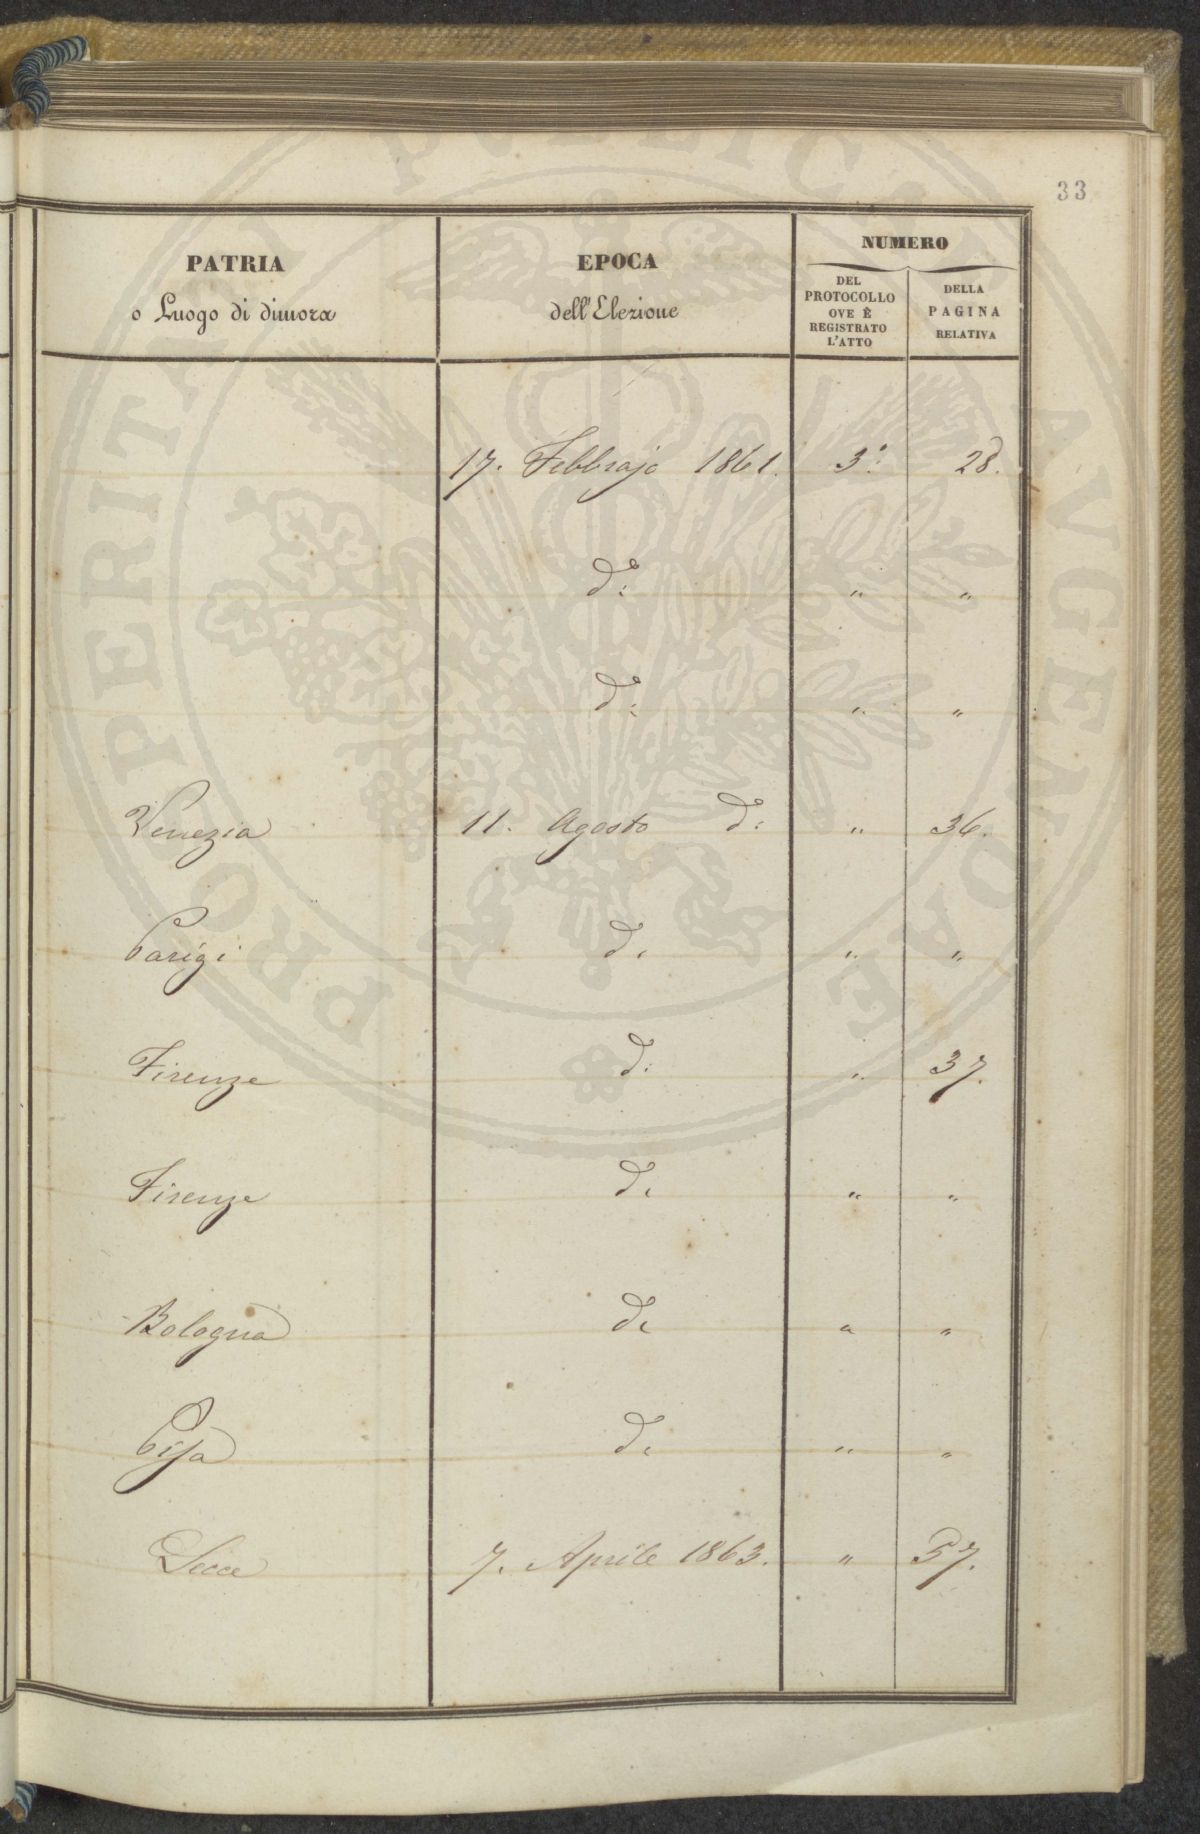 33
PATRIA
o Luogo di dimora
EPOCA
dell'Elezione
NUMERO
DEL
PROTOCOLLO
OVE È
REGISTRATO
L'ATTO
DELLA
PAGINA
RELATIVA
17. Febbrajo 1861. 3°: 28.
d°: " "
d°: " "
Venezia 11. Agosto d: " 36.
Parigi d: " "
Firenze d: " 37.
Firenze d: " "
Bologna d: " "
Pisa d: " "
Lecce 7. Aprile 1863. " 57.
PROPERITATI PUBLICAE AVGENDAE